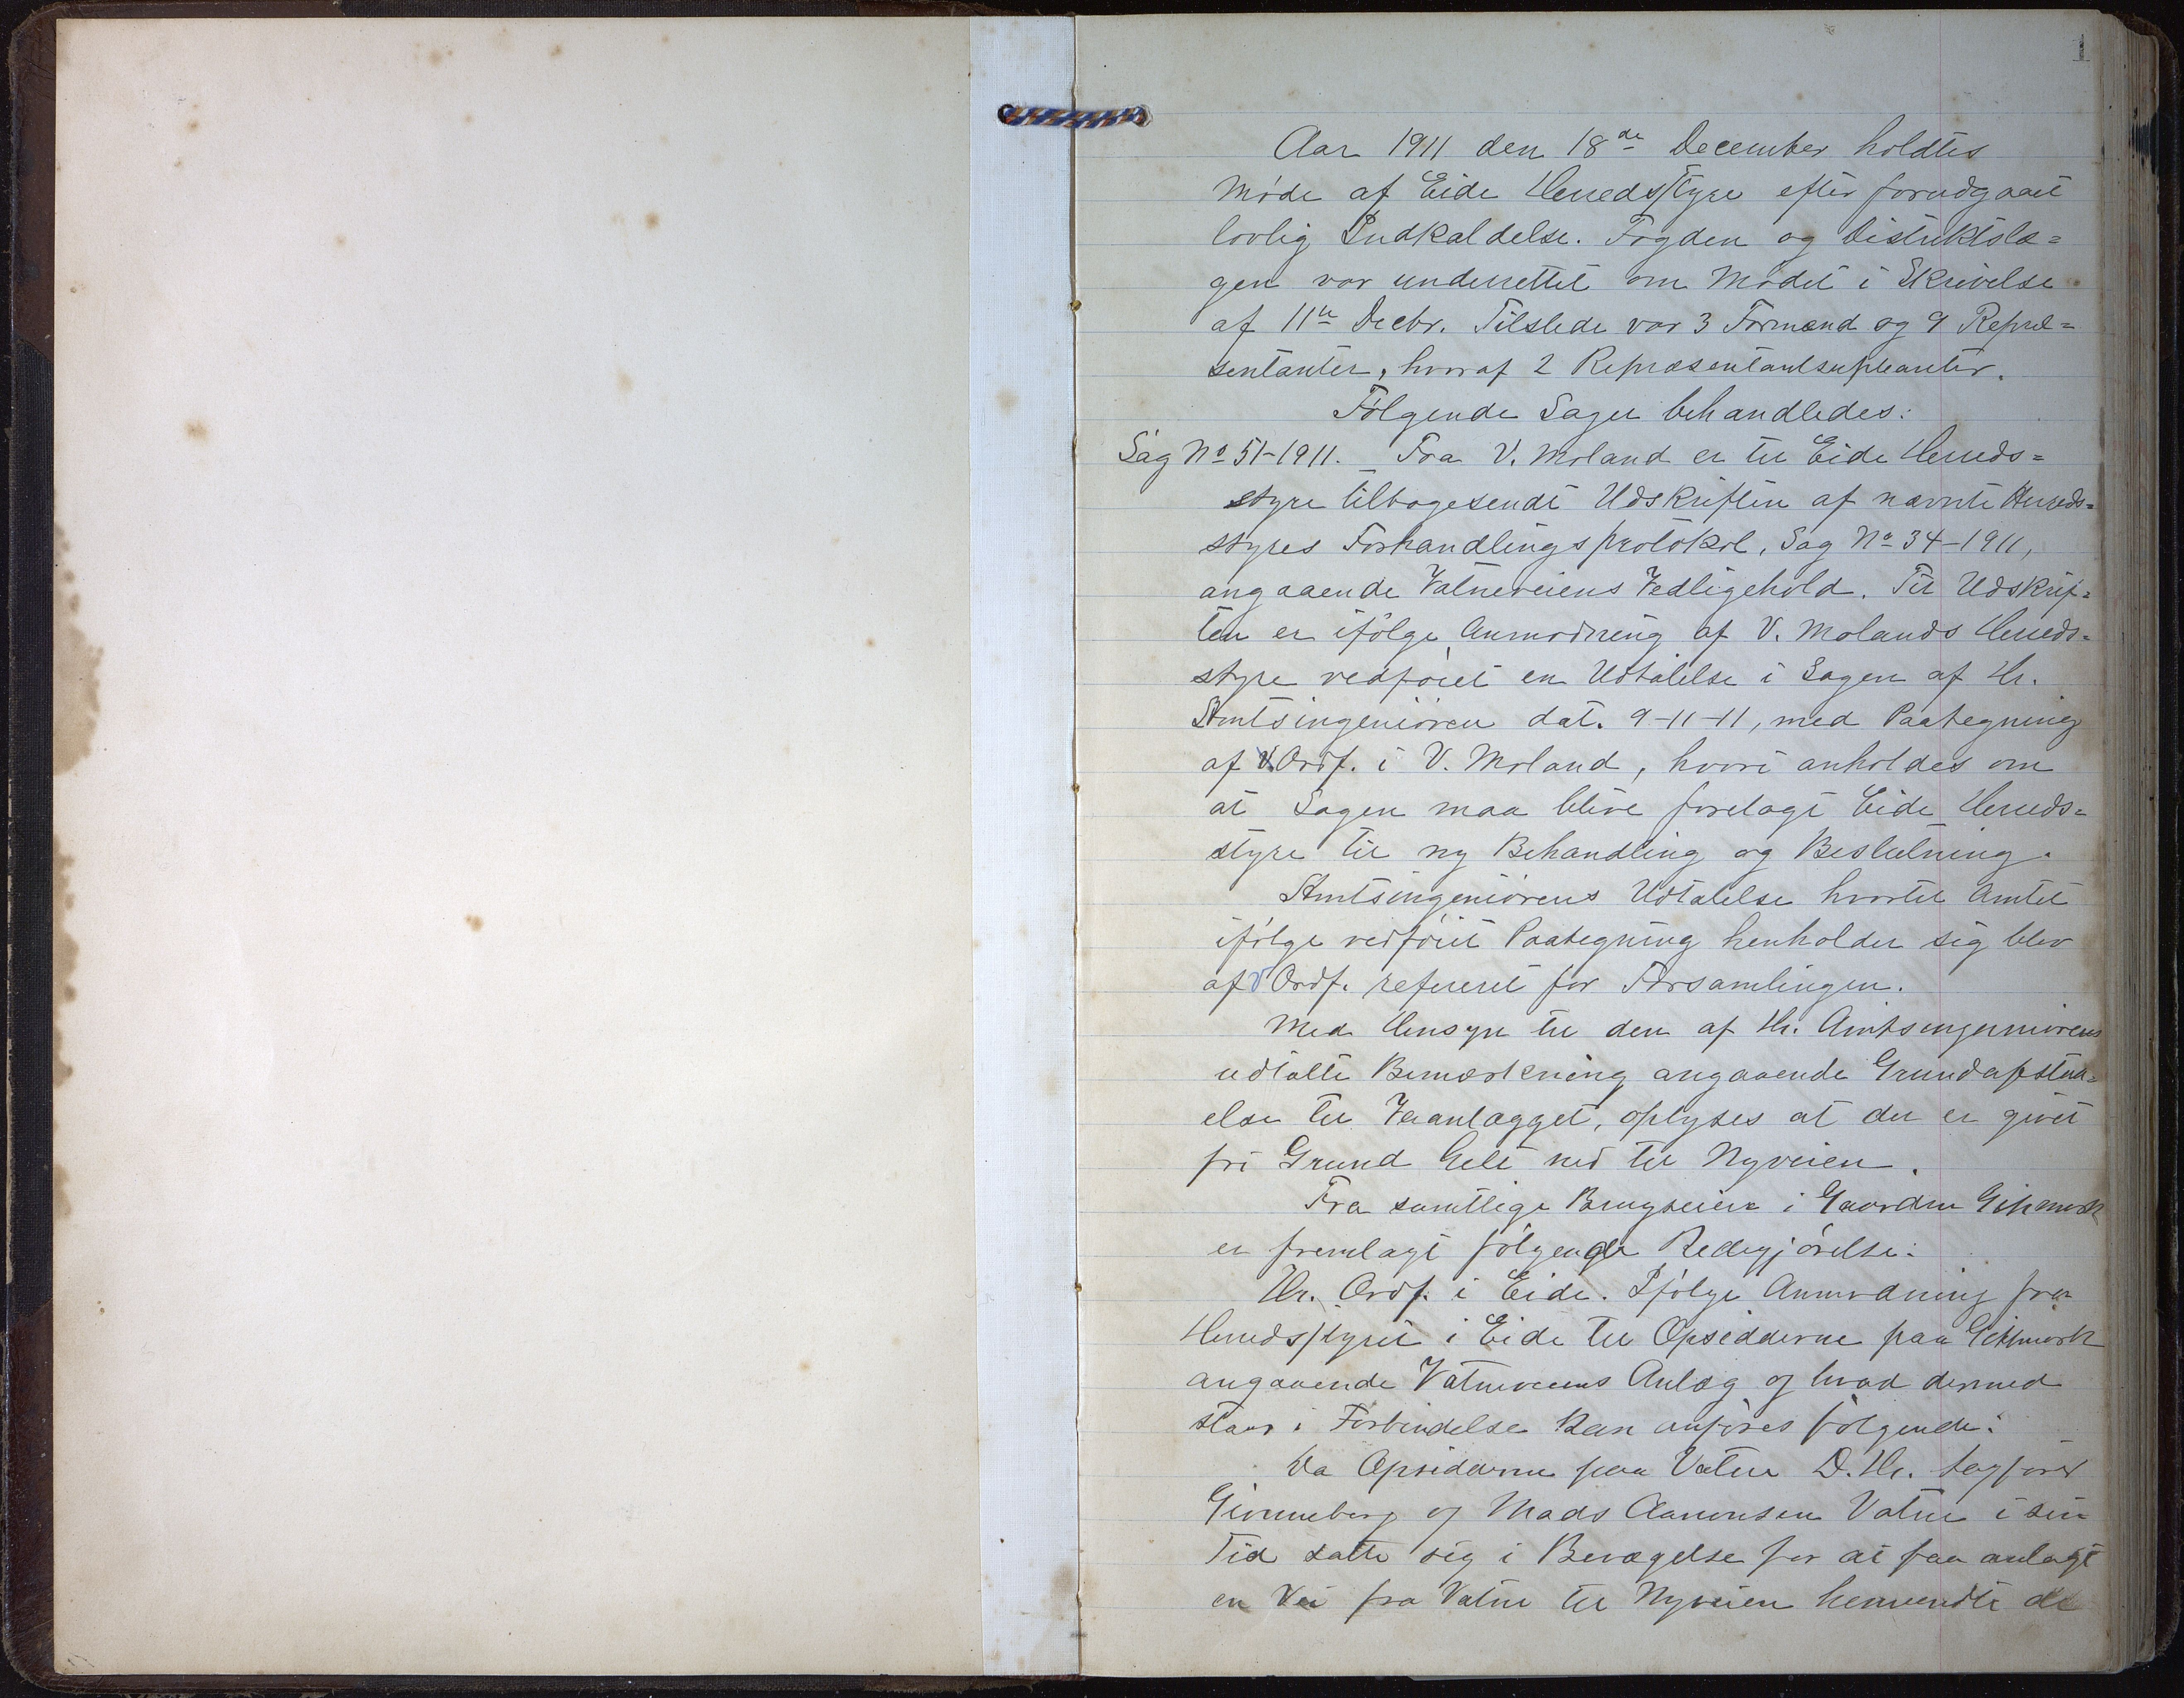 1
Aar 1911 den 18de December holdtes
Møde af Eide Herredsstyre efter forudgaaet
lovlig Indkaldelse. Fogden og Distriktslæ=
gen var underrettet om Mødet i Skrivelse
af 11te Decbr. Tilstede var 3 Formænd og 9 Repræ=
sentanter, hvoraf 2 Repræsentantsupleanter.
Følgende Sager behandledes:
Sag No 51-1911. Fra V. Moland er til Eide Herreds=
styre tilbagesendt Udskriften af nævnte Herreds=
styres Forhandlingsprotokol, Sag No 34-1911,
angaaende Vatneveiens Vedligehold. Til Udskrif=
ten er ifølge Anmodning af V. Molands Herreds=
styre vedføiet en Udtalelse i Sagen af Hr.
Amtsingeniøren dat. 9-11-11, med Paategning
af V. Ordf. i V. Moland, hvori anholdes om
at Sagen maa blive forelagt Eide Herreds=
styre til ny Behandling og Beslutning.
Amtsingeniørens Udtalelse hvortil Amtet
ifølge vedføiet Paategning henholder sig blev
af V Ordf. refereret for Forsamlingen.
Med Hensyn til den af Hr. Amtsingeniørens
udtalte Bemærkning angaaende Grundafstaa=
else til Veianlægget, oplyses at der er givet
fri Grund helt ned til Nyveien.
Fra samtlige Brugseiere i Gaarden
er fremlagt følgende Redegjørelse:
Hr. Ordf. i Eide. Ifølge Anmodning fra
Herredsstyret i Eide til Opsidderne paa
angaaende Vatneveiens Anlæg og hvad dermed
staar i Forbindelse kan anføres følgende:
Da Opsidderne paa Vatne D. Hr. Sagfører
og Mads Aanonsen Vatne i sin
Tid satte sig i Bevægelse for at faa anlagt
en Vei fra Vatne til Nyveien henvendte de